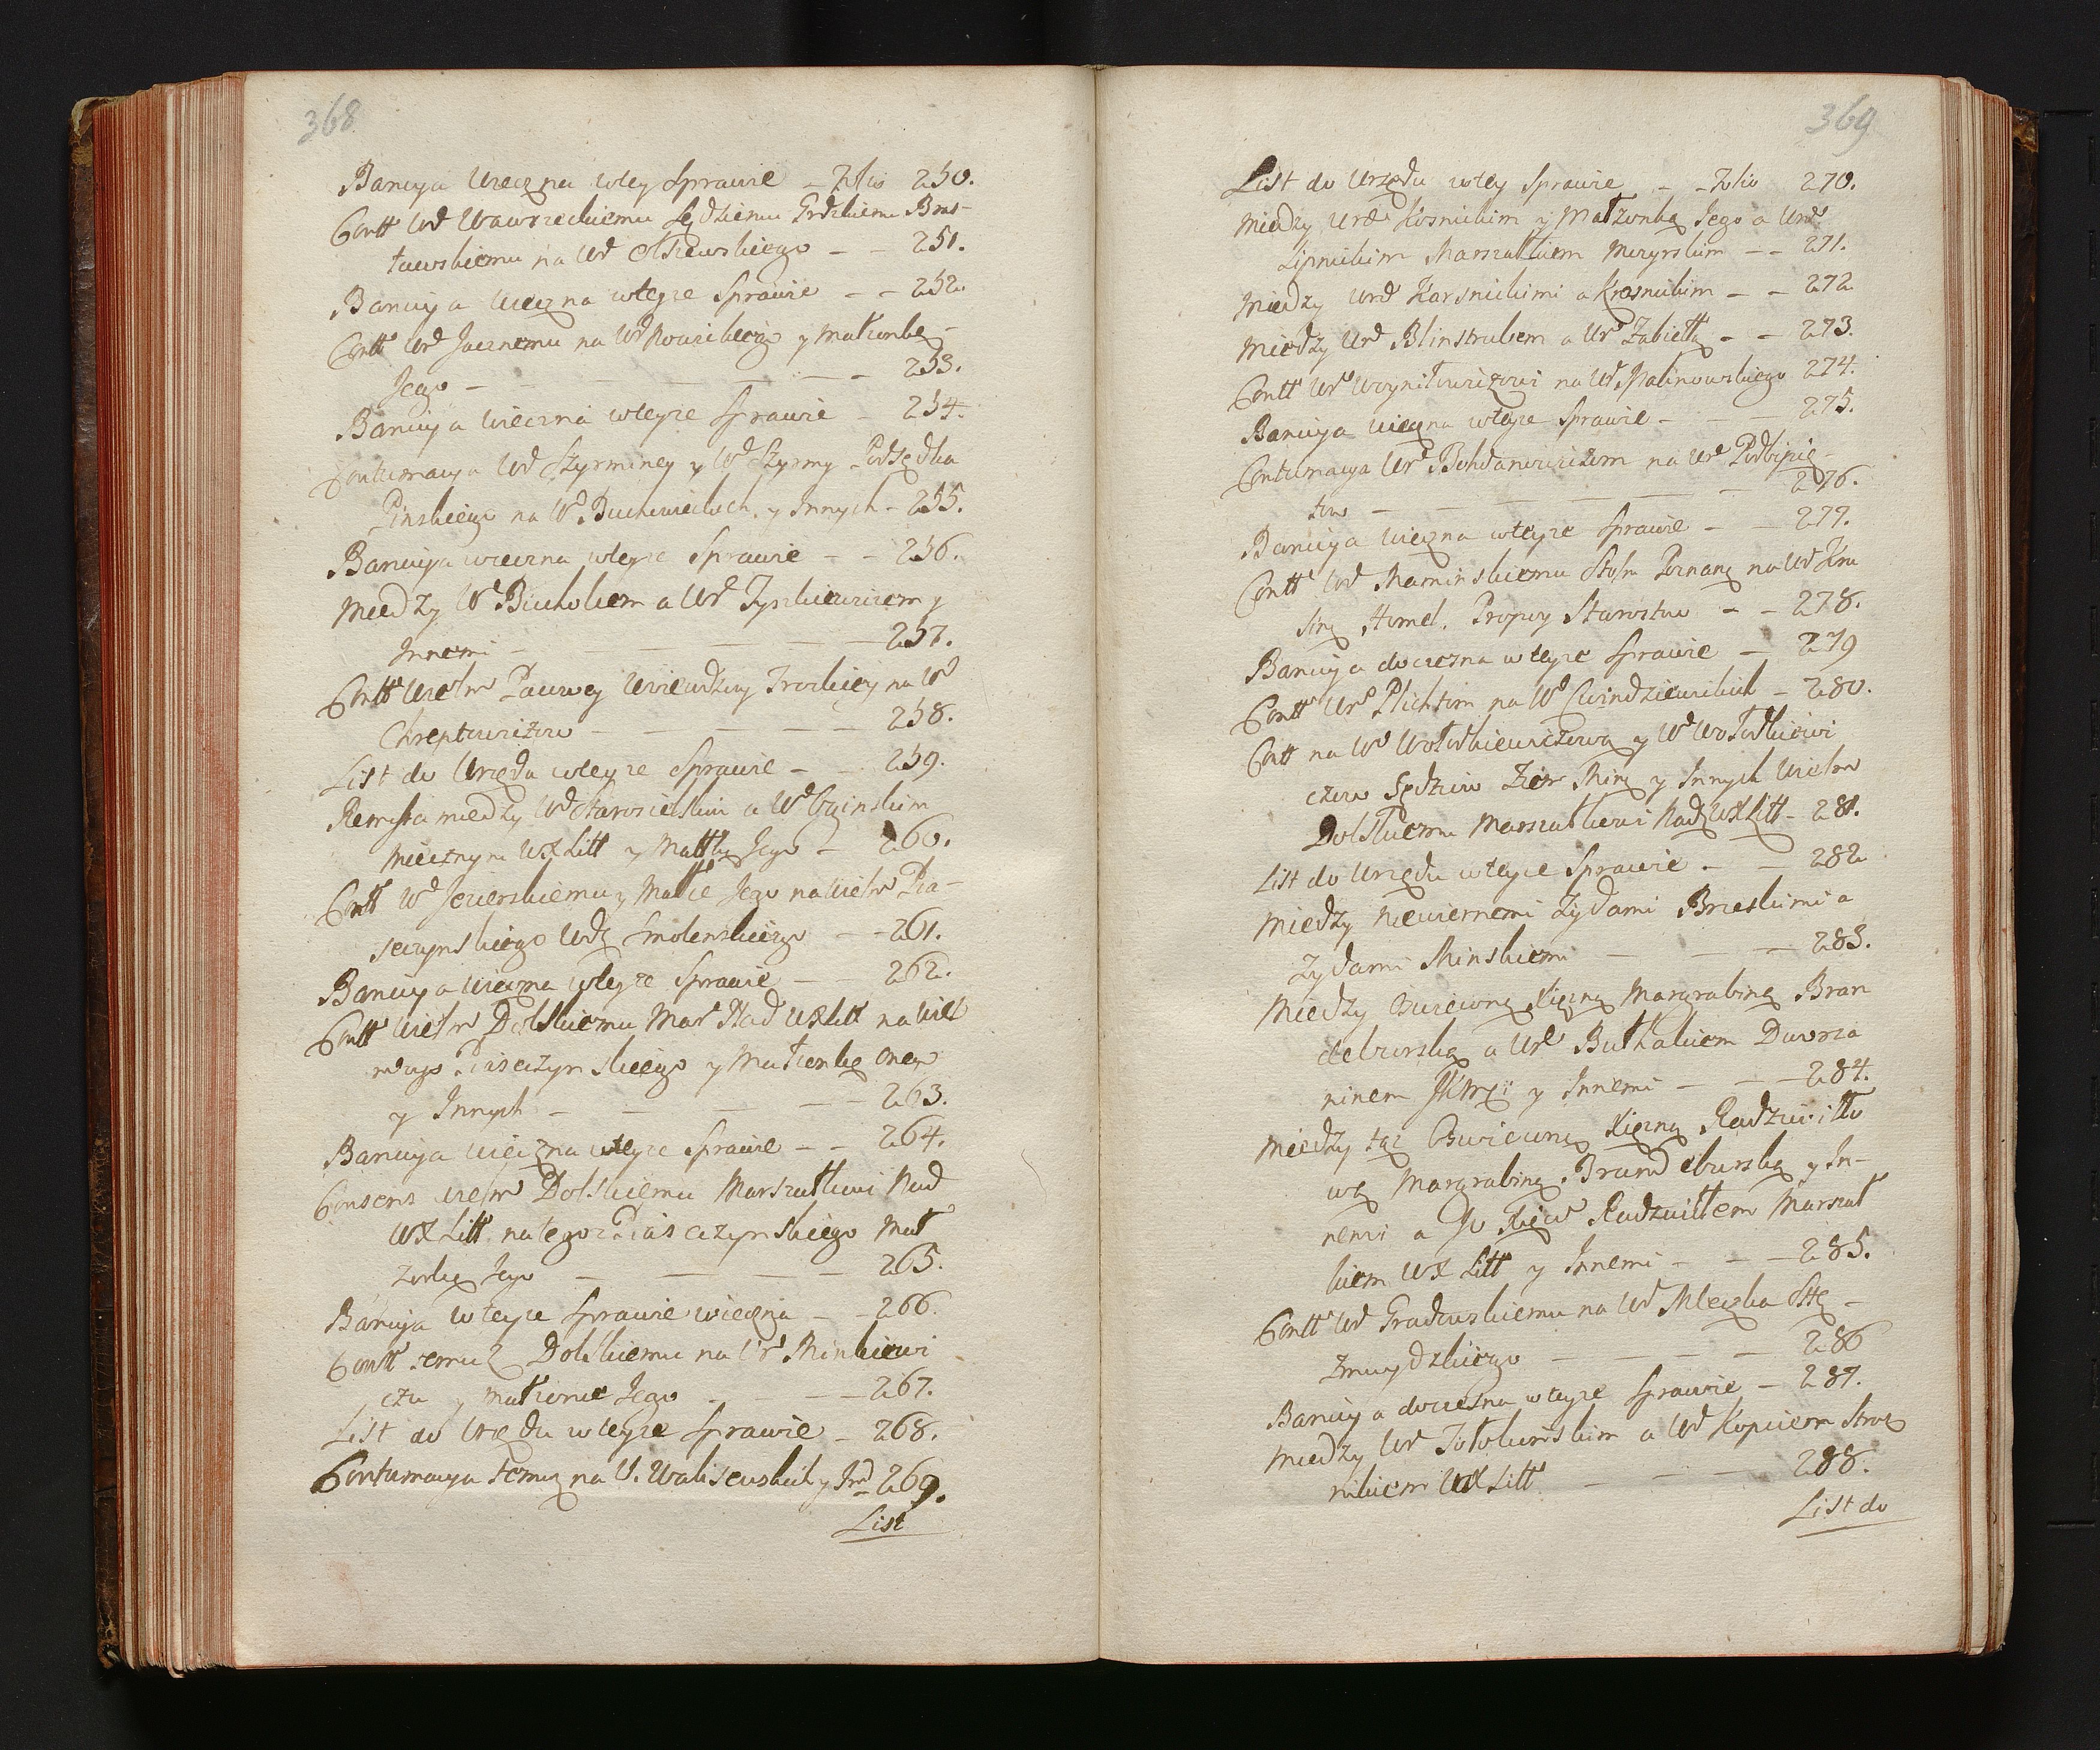 368
Banicya wieczna wtey Sprawie – Folio 250.
Contt Urd Wawrzeckiemu Sędziemu Grdzkiemu Bras-
ławskiemu na Ur Olszewskiego – – 251.
Banicya wieczna wteyze Sprawie – – 252
Contt Urd na Urd y Małzonkę
Jego – – – – – – 253.
Banicya wieczna wteyze Sprawie – 254.
Contumacya Urd Szyrminey y Ur Szyrmy Podsędka
Pinskiego na Ur y Innych – 255.
Banicya wieczna wteyze Sprawie – – 256.
Miedzy Ur a Urd Tyszkiewiczem y
Innemi – – – – – 257.
Contt Wielm Pacowey Woiewdziny Trockiey na Ur
Chreptowiczow – – – – – 258.
List do Urzędu wteyze Sprawie – – 259.
Remissa miedzy Ur Starosielskim a Ur Oginskim
Miecznym WXLitt y Małłką Jego – 260.
Contt Ur Jezierskiemu y Małłce Jego na Wielm Pia-
seczynskiego Wdę Smolenskiego – – 261.
Banicya wieczna wteyze Sprawie – – 262.
Contt Wielm Dolskiemu Mar Nad WXLitt na Wiel
mego Piaseczynskiego y Małzonkę onego
y Innych – – – – – 263.
Banicya wieczna wteyze Sprawie – – 264.
Consens Wielm Dolskiemu Marszałkowi Nad
WXLitt na tegoz Piaseczynskiego Mał
zonkę Jego – – – – 265.
Banicya wteyze Sprawie wieczna – – 266.
Contt temuz Dolskiemu na Ur Minkiewi
cza y Małzonkę Jego – – – 267.
List do Urzędu wteyze Sprawie – 268.
Contumacya temuz na U. Walisewskich y Inn 269.
List
369
List do Urzędu wtey Sprawie – – Folio 270.
Miedzy Urd Kosnickim y Małzonką Jego a Urd
Lipnickim Marszałkiem Mozyrskim – – 271.
Miedzy Urd Karsnickimi a Krosnickim – – 272
Miedzy Urd Blinstrubem a Ur Zabiełłą – – 273.
Contt Ur Woyniłowiczowi na Ur Malinowskiego 274.
Banicya wieczna wteyze Sprawie – – – 275.
Contumacya Ur Bohdanowiczom na Urd Podbipię-
tow – – – – – – 276.
Banicya wieczna wteyze Sprawie – – 277.
Contt Urd Maminskiemu Stoln Poznanę na Urd Kra
sinę Homel. Propoy Starostow – – 278.
Banicya doczesna wteyze Sprawie – 279
Contt Ur Plichtom na Ur – 280.
Contt na Ur Wołodkiewiczową y Ur Wołodkiewi
czow Sędziow Ziem Minę y Innych Wielm
Dolskiemu Marszałkowi Nad WXLitt – 281.
List do Urzędu wteyze Sprawie – – 282
Miedzy Niewiernemi Zydami Brzeskimi a
Zydami Minskiemi – – – 283.
Miedzy Oswiewną Xięzną Margrabiną Bran
deburską a Urd Buthakiem Dworza
ninem JKMci y Innemi – – – 284.
Miedzy tąz Oswiewną Xięzną Radziwiłło
wą Margrabiną Brandeburską y In-
nemi a Jo Xięw Radziwiłłem Marszał
kiem WX Litt y Innemi – – – 285.
Contt Urd Gradowskiemu na Urd Mleczka Sttę
Zmuydzkiego – – – – – 286
Banicya doczesna wteyze Sprawie – 287.
Miedzy Urd Tołokonskim a Urd Kopciem Straz
nikiem WXLitt – – – – 288.
List do